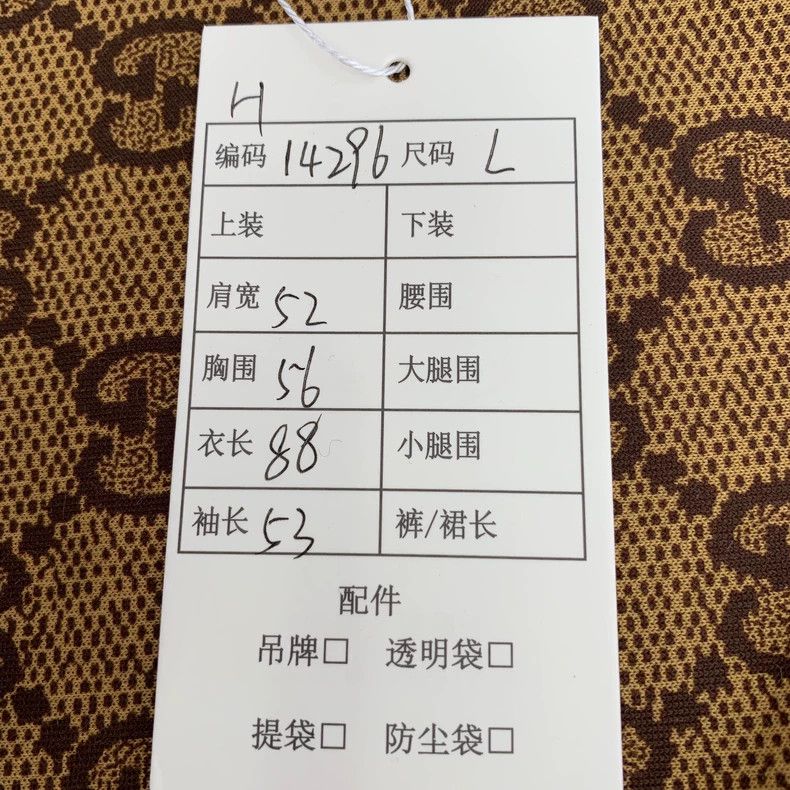 H
编码 14296 尺码 L
上装 下装
肩宽 52 腰围
胸围 56 大腿围
衣长 88 小腿围
袖长 53 裤/裙长
配件
吊牌□ 透明袋□
提袋□ 防尘袋□